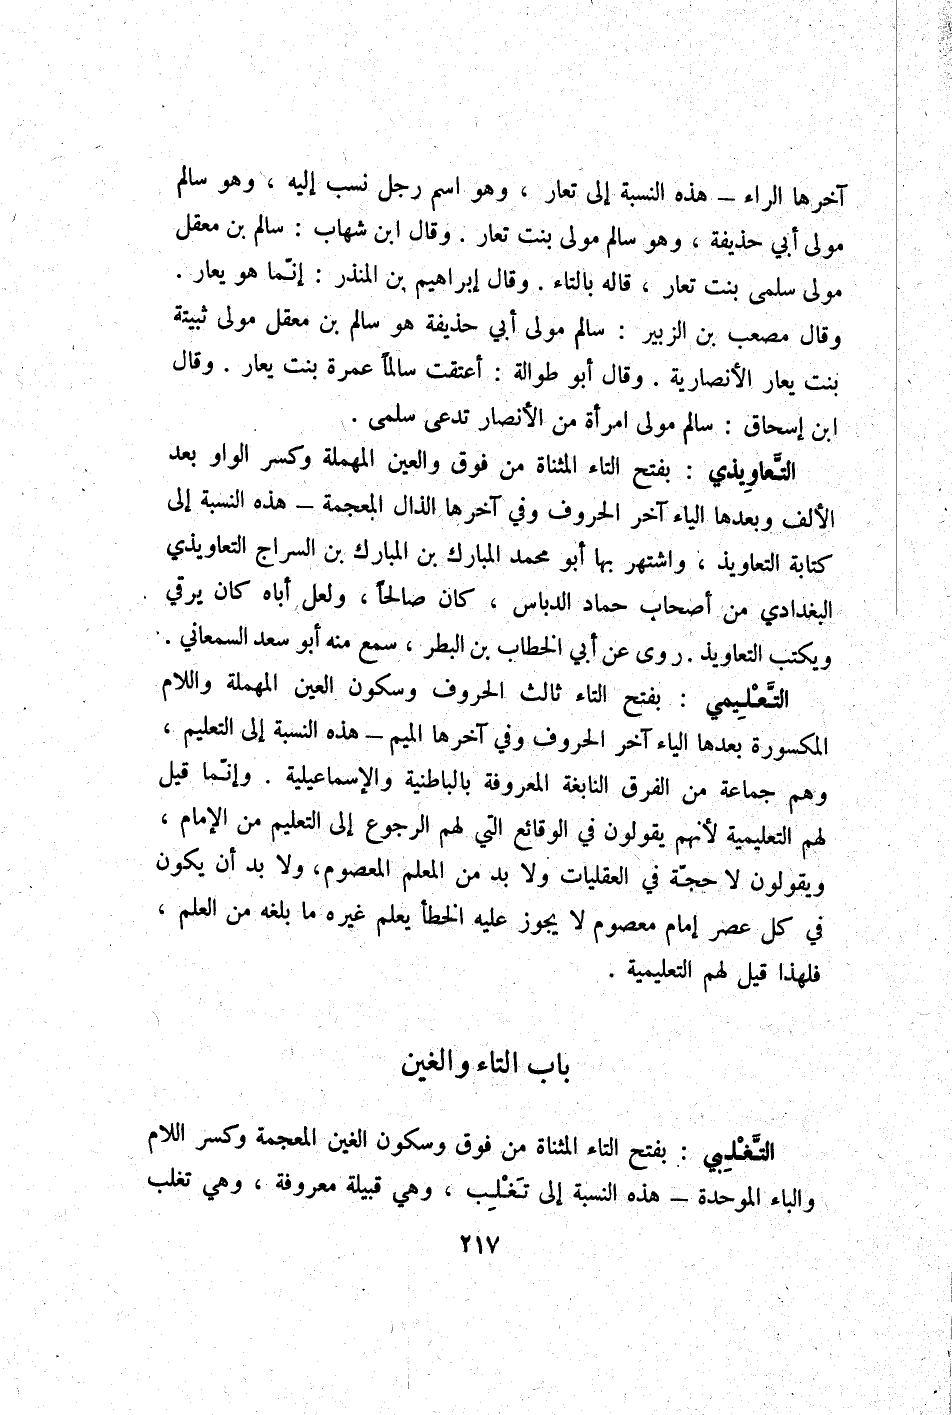 آخرها الراء – هذه النسبة إلى تعار ، وهو اسم رجل نسب إليه ، وهو سالم
مولى أبي حذيفة ، وهو سالم مولى بنت تعار . وقال ابن شهاب : سالم بن معقل
مولى سلمى بنت تعار ، قاله بالتاء . وقال إبراهيم بن المنذر : إنّما هو يعار .
وقال مصعب بن الزبير : سالم مولى أبي حذيفة هو سالم بن معقل مولى ثبيتة
بنت يعار الأنصارية . وقال أبو طوالة : أعتقت سالماً عمرة بنت يعار . وقال
ابن إسحاق : سالم مولى امرأة من الأنصار تدعى سلمى .
التَّعاوِيذي : بفتح التاء المثناة من فوق والعين المهملة وكسر الواو بعد
الألف وبعدها الياء آخر الحروف وفي آخرها الذال المعجمة – هذه النسبة إلى
كتابة التعاويذ ، واشتهر بها أبو محمد المبارك بن المبارك بن السراج التعاويذي
البغدادي من أصحاب حماد الدباس ، كان صالحاً ، ولعل أباه كان يرقي
ويكتب التعاويذ . روى عن أبي الخطاب بن البطر ، سمع منه أبو سعد السمعاني .
التَّعْلِيمي : بفتح التاء ثالث الحروف وسكون العين المهملة واللام
المكسورة بعدها الياء آخر الحروف وفي آخرها الميم – هذه النسبة إلى التعليم ،
وهم جماعة من الفرق النابغة المعروفة بالباطنية والإسماعيلية . وإنّما قيل
لهم التعليمية لأنهم يقولون في الوقائع التي لهم الرجوع إلى التعليم من الإمام ،
ويقولون لا حجّة في العقليات ولا بد من المعلم المعصوم، ولا بد أن يكون
في كل عصر إمام معصوم لا يجوز عليه الخطأ يعلم غيره ما بلغه من العلم ،
فلهذا قيل لهم التعليمية .
باب التاء والغين
التَّغْلِبي : بفتح التاء المثناة من فوق وسكون الغين المعجمة وكسر اللام
والباء الموحدة – هذه النسبة إلى تَغْلِب ، وهي قبيلة معروفة ، وهي تغلب
٢١٧